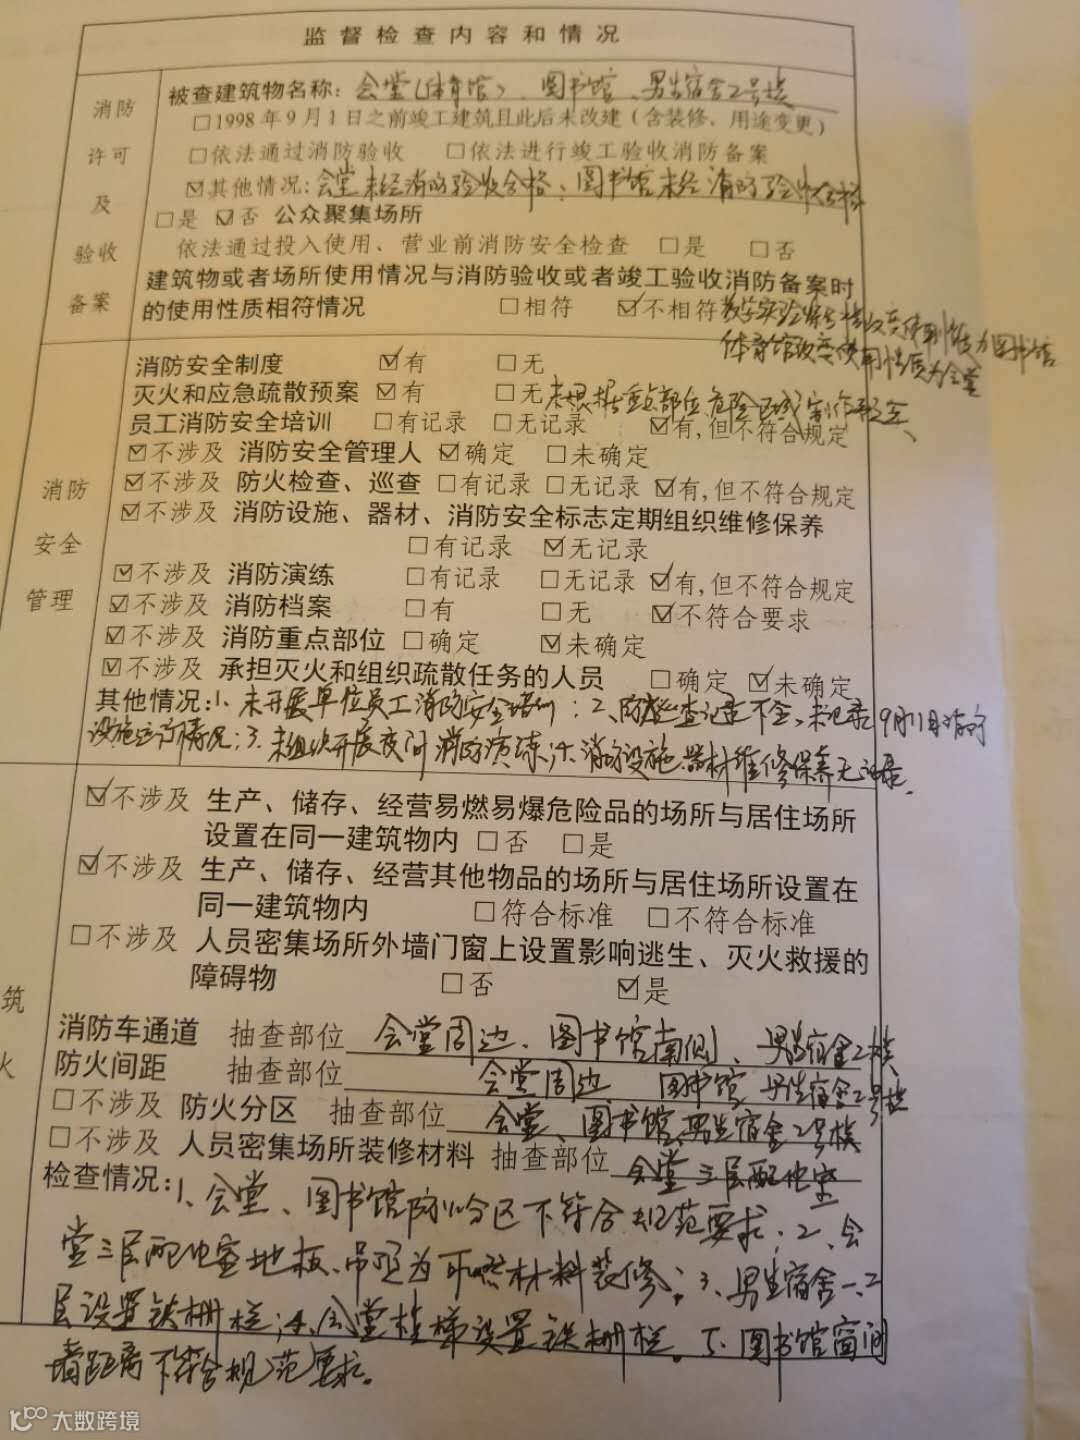 监督检查内容和情况
消防
许可
及
验收
备案
被查建筑物名称：会堂（体育馆）、图书馆、男生宿舍2号楼
□1998年9月1日之前竣工建筑且此后未改建（含装修、用途变更）
□依法通过消防验收 □依法进行竣工验收消防备案
☑其他情况：会堂未经消防验收合格、图书馆未经消防验收合格
□是 ☑否 公众聚集场所
依法通过投入使用、营业前消防安全检查 □是 □否
建筑物或者场所使用情况与消防验收或者竣工验收消防备案时
的使用性质相符情况 □相符 ☑不相符 教学实验综合楼改变使用性质为图书馆
体育馆改变使用性质为会堂
消防
安全
管理
消防安全制度 ☑有 □无
灭火和应急疏散预案 ☑有 □无 未根据重点部位、危险区域制作预案、
员工消防安全培训 □有记录 □无记录 ☑有，但不符合规定
☑不涉及 消防安全管理人 ☑确定 □未确定
☑不涉及 防火检查、巡查 □有记录 □无记录 ☑有，但不符合规定
☑不涉及 消防设施、器材、消防安全标志定期组织维修保养
□有记录 ☑无记录
☑不涉及 消防演练 □有记录 □无记录 ☑有，但不符合规定
☑不涉及 消防档案 □有 □无 ☑不符合要求
☑不涉及 消防重点部位 □确定 ☑未确定
☑不涉及 承担灭火和组织疏散任务的人员 □确定 ☑未确定
其他情况：1、未开展单位员工消防安全培训；2、防火巡查记录不全，未记录9月11日消防
设施运行情况；3、未组织开展夜间消防演练；消防设施器材维修保养无记录。
筑
火
☑不涉及 生产、储存、经营易燃易爆危险品的场所与居住场所
设置在同一建筑物内 □否 □是
☑不涉及 生产、储存、经营其他物品的场所与居住场所设置在
同一建筑物内 □符合标准 □不符合标准
□不涉及 人员密集场所外墙门窗上设置影响逃生、灭火救援的
障碍物 □否 ☑是
消防车通道 抽查部位 会堂周边、图书馆南侧、男生宿舍2楼
防火间距 抽查部位 会堂周边 图书馆 男生宿舍2号楼
□不涉及 防火分区 抽查部位 会堂、图书馆、男生宿舍2号楼
□不涉及 人员密集场所装修材料 抽查部位 会堂三层配电室
检查情况：1、会堂、图书馆防火分区不符合规范要求；2、会
堂三层配电室地板、吊顶为可燃材料装修；3、男生宿舍一、二
层设置铁栅栏；4、会堂楼梯设置铁栅栏。5、图书馆窗间
墙距离不符合规范要求。
大数跨境